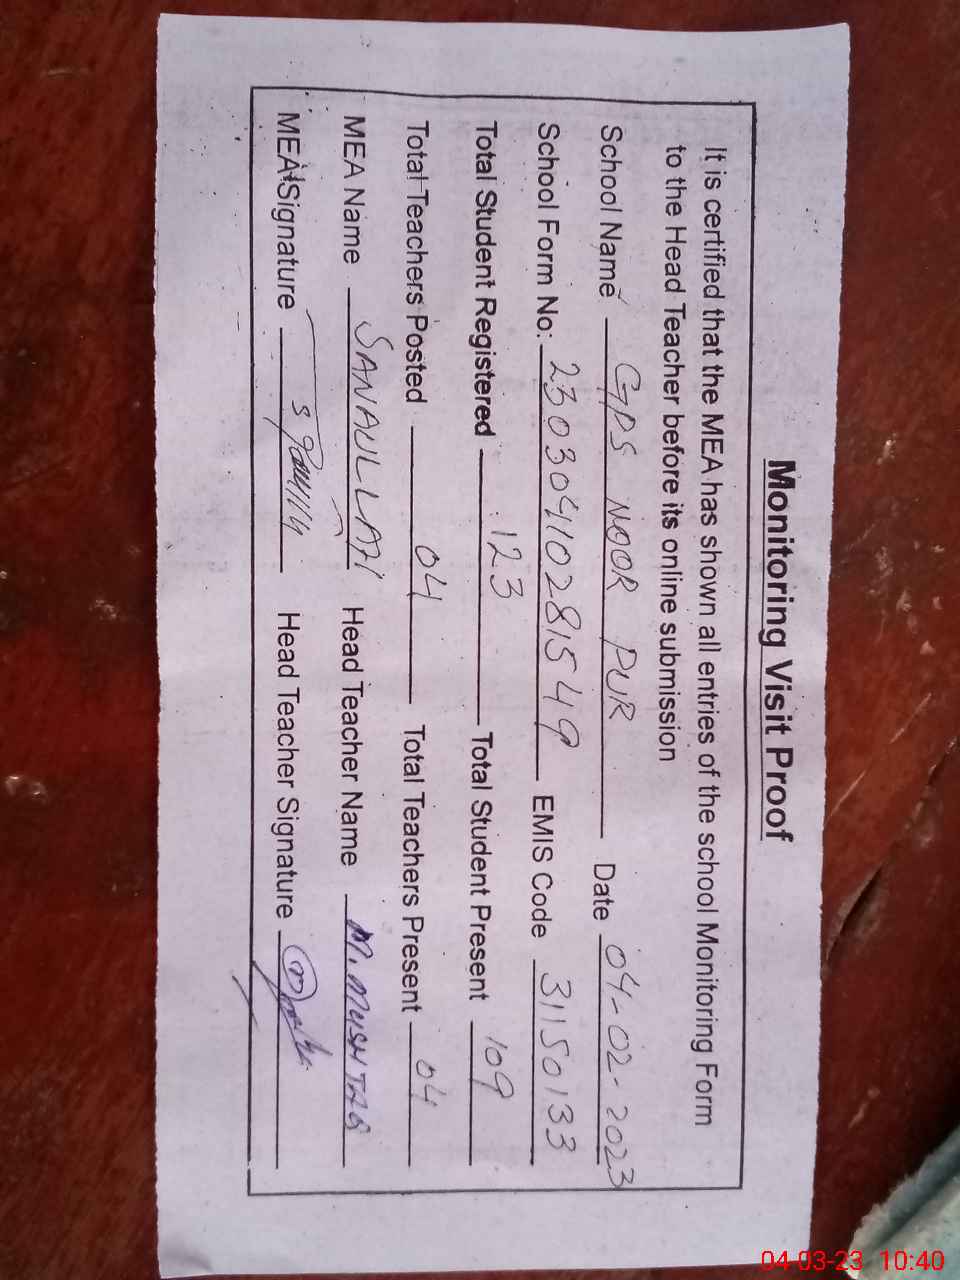 Monitoring Visit Proof
It is certified that the MEA has shown all entries of the school Monitoring Form
to the Head Teacher before its online submission
School Name GPS NOOR PUR Date 04-02-2023
School Form No: 23030410281549 EMIS Code 31150133
Total Student Registered 123 Total Student Present 109
Total Teachers Posted 04 Total Teachers Present 04
MEA Name SANAULLAH Head Teacher Name M. MUSHTAQ
MEA Signature Head Teacher Signature
04-03-23 10:40